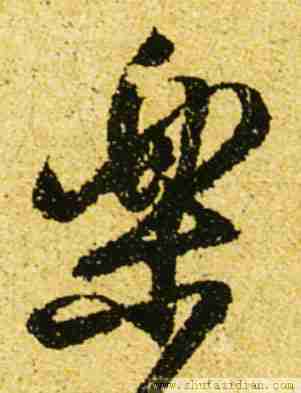 樂
www.shufazidian.com